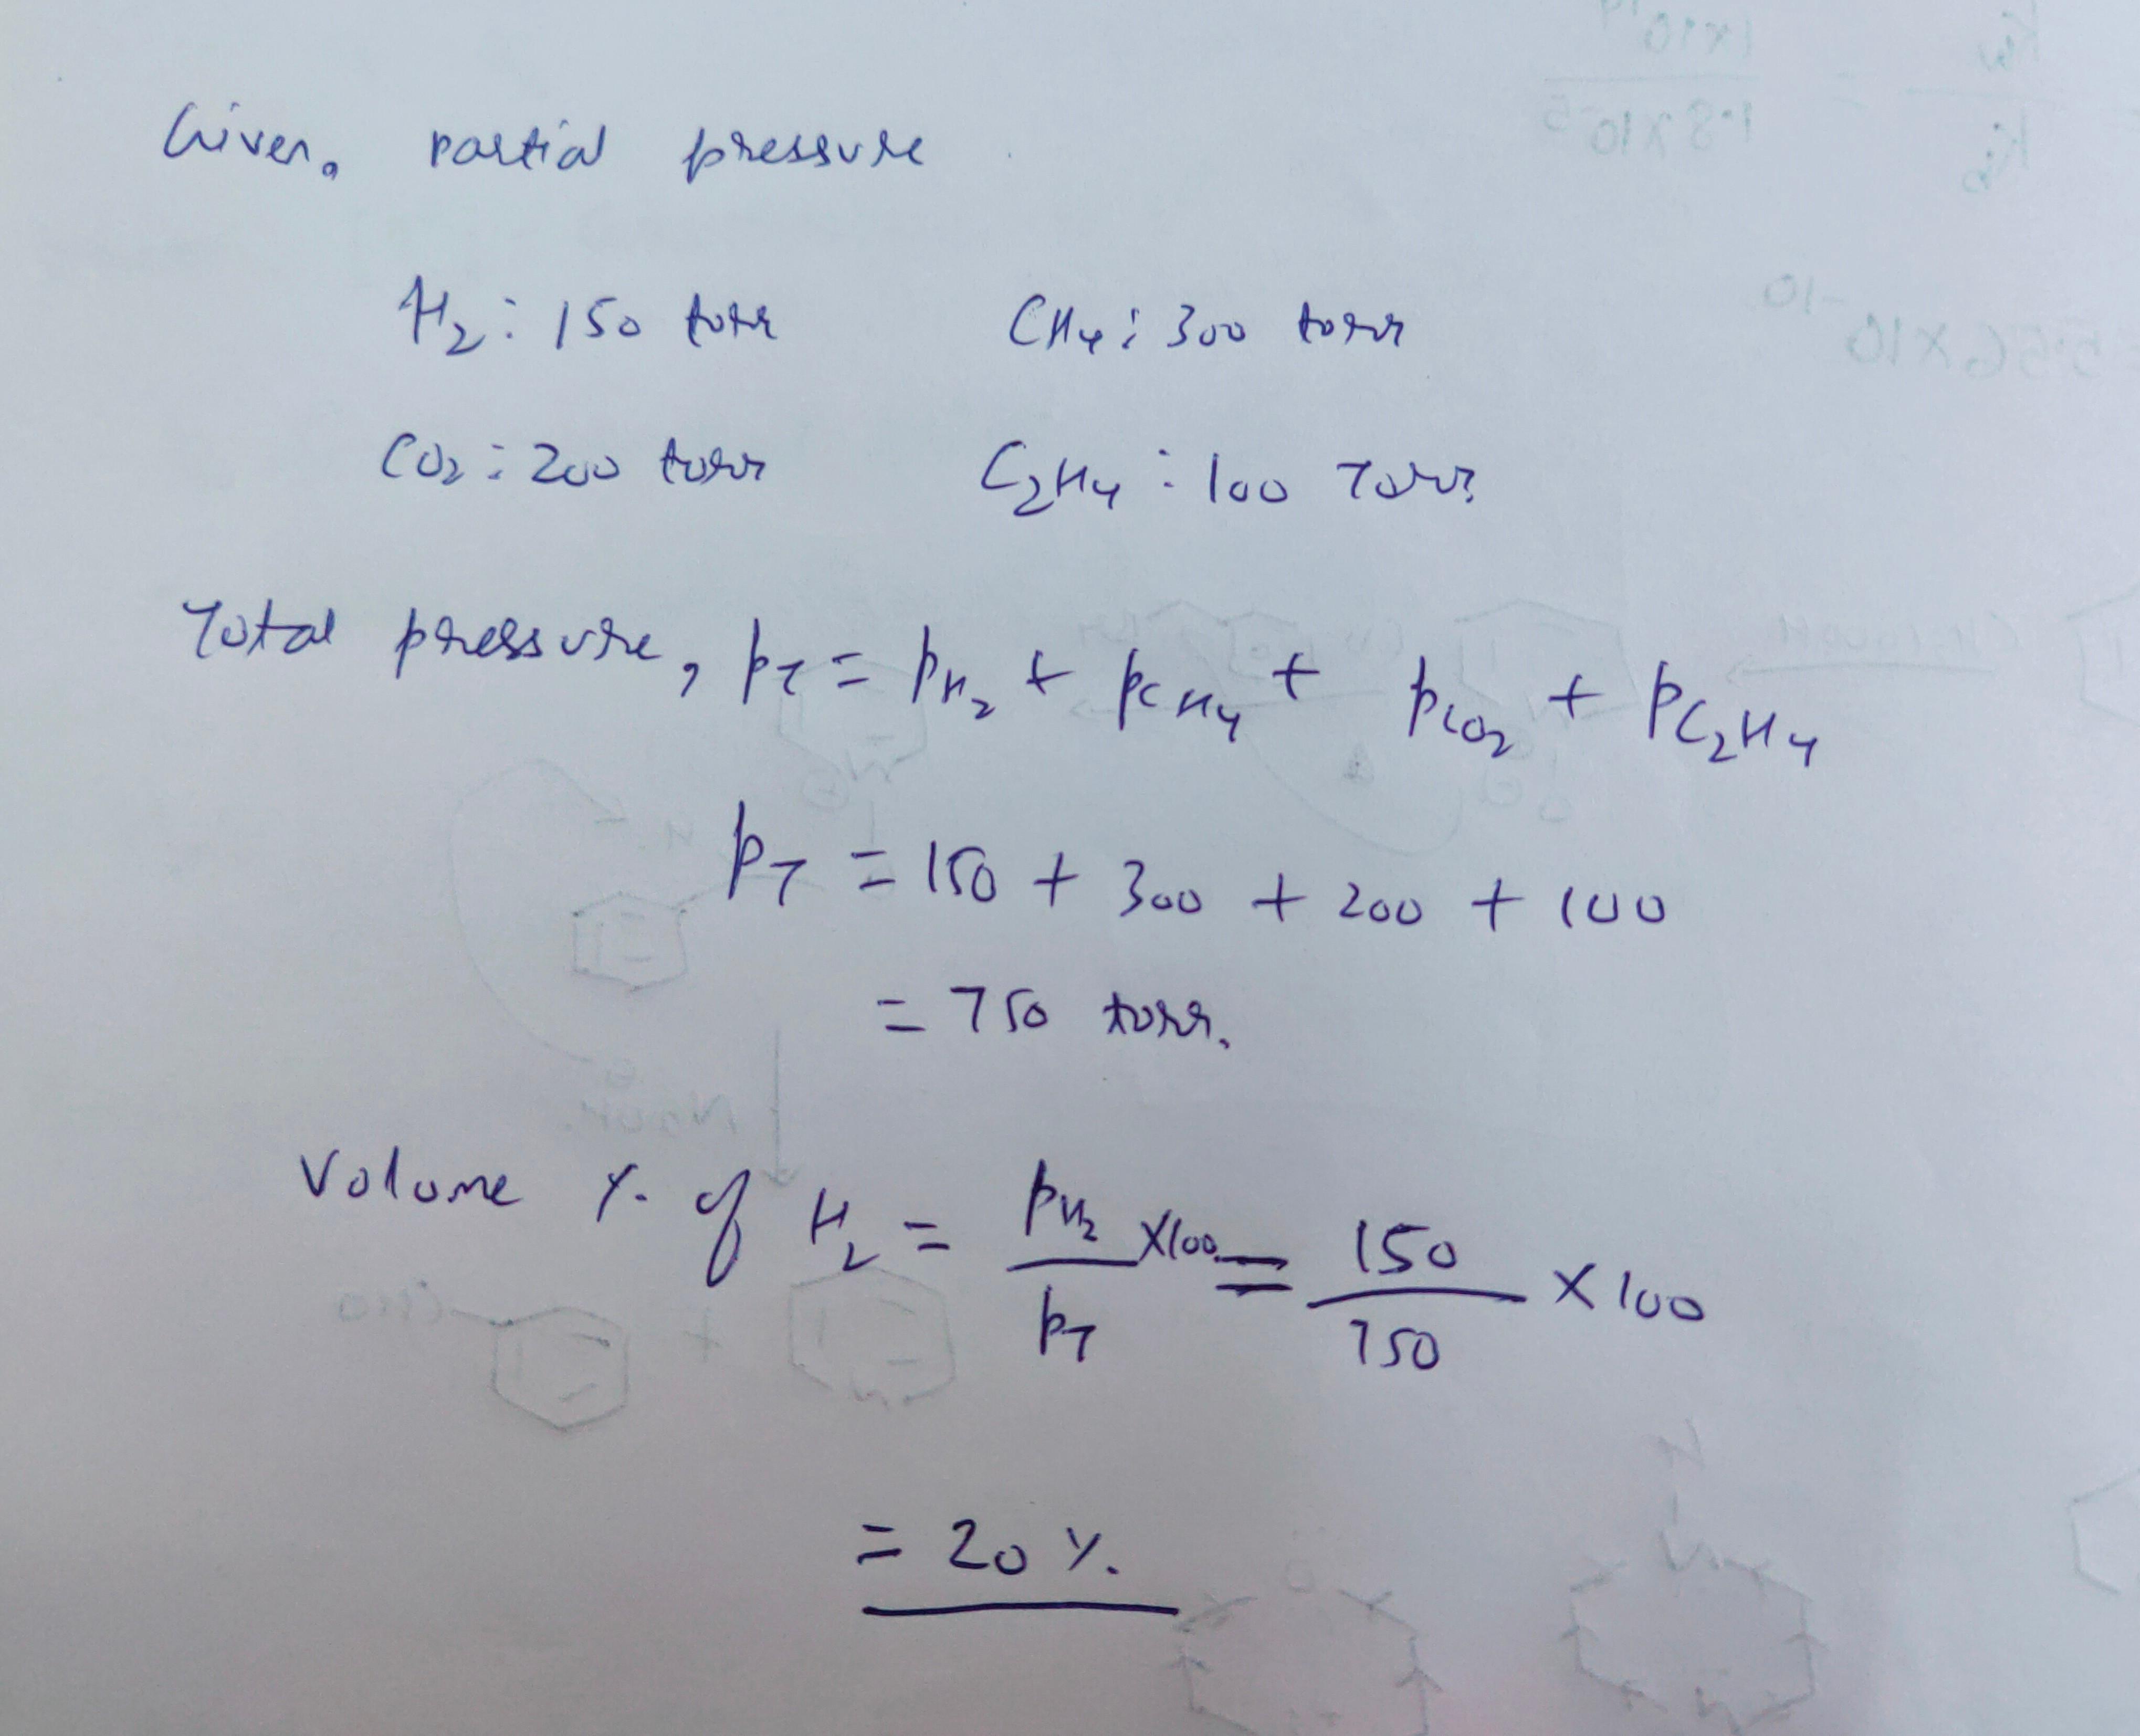 Given, partial pressure
H₂ : 150 torr CH₄ : 300 torr
CO₂ : 200 torr C₂H₄ : 100 Torr
Total pressure, p_T = p_H₂ + p_CH₄ + p_CO₂ + p_C₂H₄
p_T = 150 + 300 + 200 + 100
= 750 torr.
Volume % of H₂ = p_H₂/p_T ×100 = 150/750 × 100
= 20 %